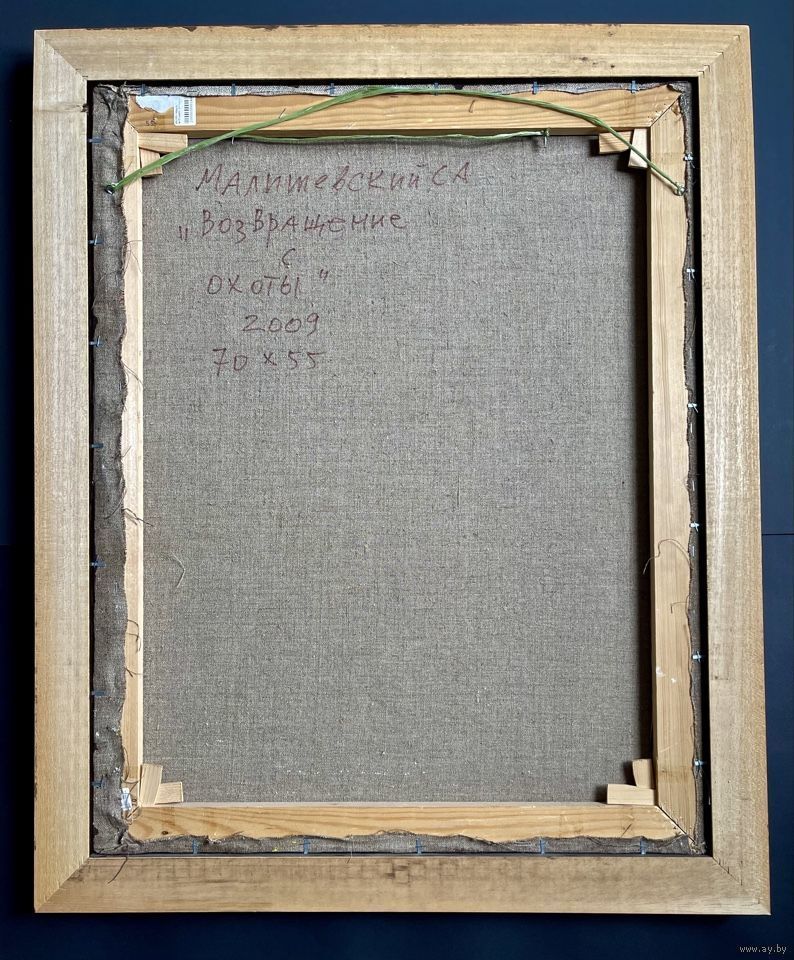 Малишевский СА
"Возвращение
с
охоты"
2009
70 x 55
55
www.ay.by